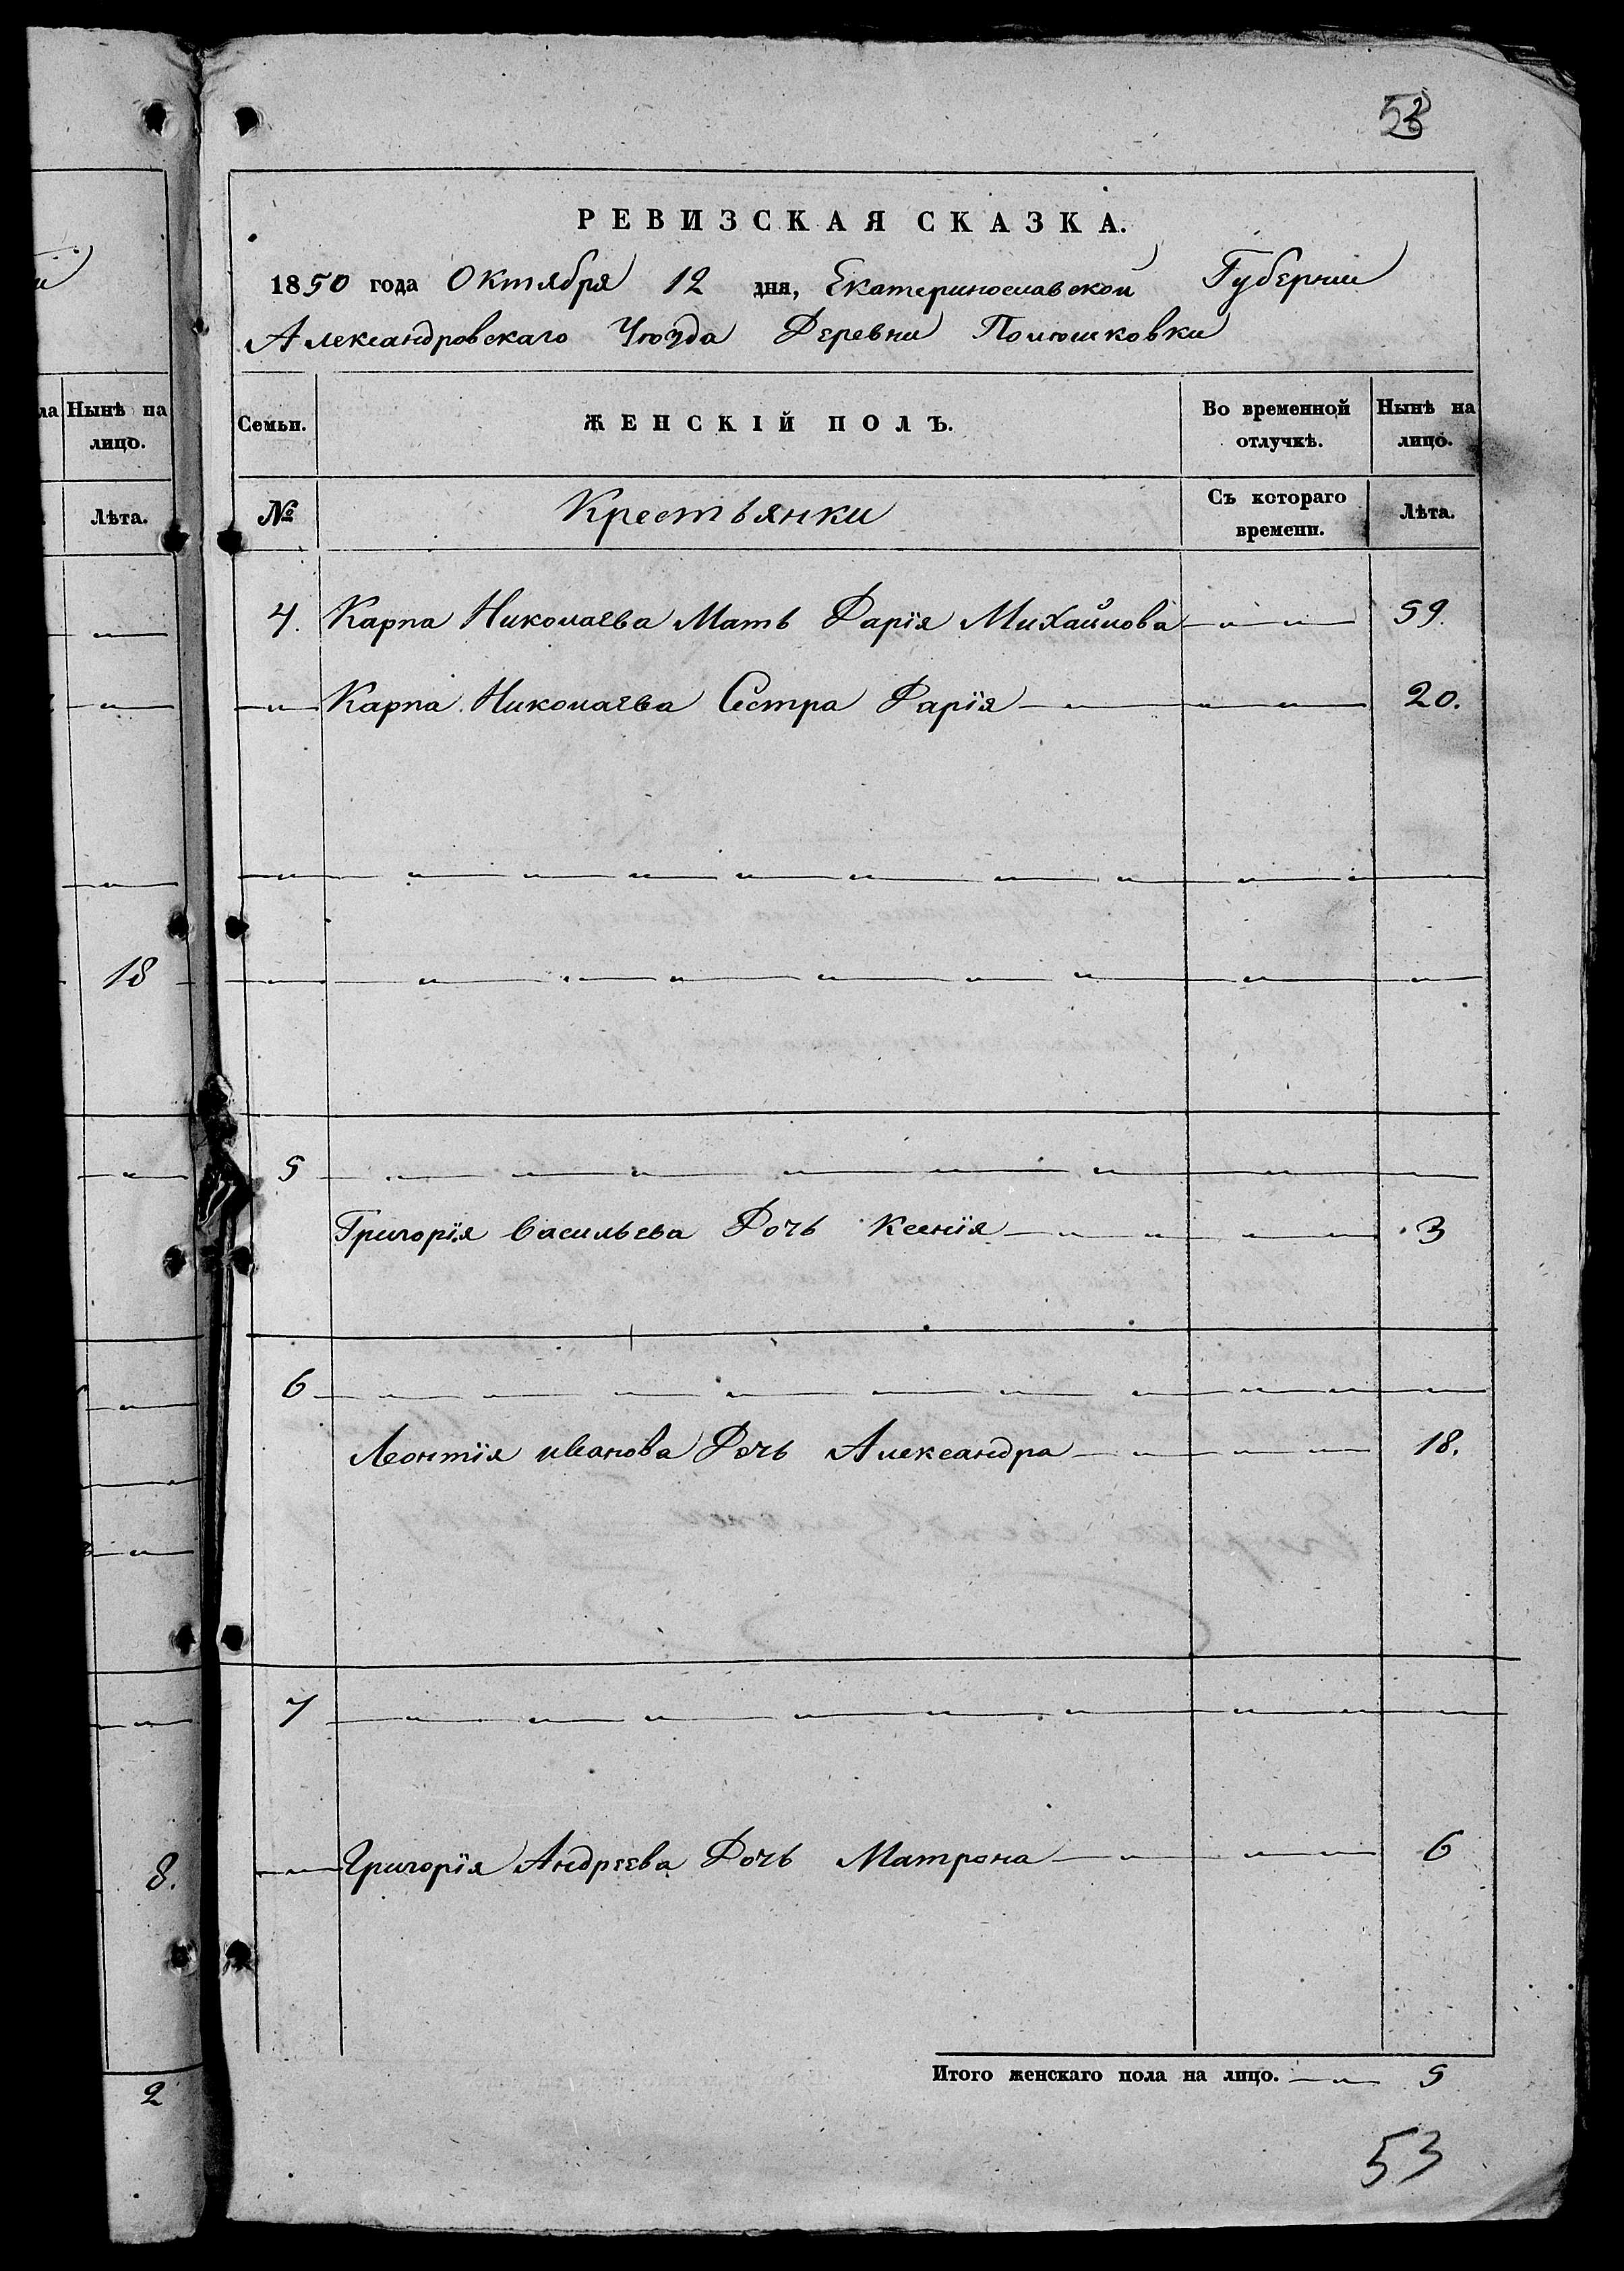 53
РЕВИЗСКАЯ СКАЗКА.
1850 года Октября 12 дня, Екатеринославской Губернии
Александровскаго Уѣзда Деревни Полюшковки
ла Нынѣ на лицо.
Лѣта.
18
8.
2
Семьи. ЖЕНСКІЙ ПОЛЪ. Во временной отлучкѣ. Нынѣ на лицо.
№ Крестьянки Съ котораго времени. Лѣта.
4. Карпа Николаева Мать Дарія Михайлова 59.
Карпа Николаева Сестра Дарія 20.
5
Григорія Васильева Дочь Ксенія 3
6
Леонтія Иванова Дочь Александра 18.
7
Григорія Андреева Дочь Матрона 6
Итого женскаго пола на лицо. 5
53